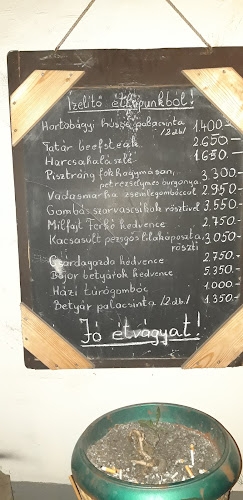 Ízelítő étlapunkból!
Hortobágyi húsos palacsinta /2db/ 1.400-
Tatár beefsteak 2.650-
Harcsahalászlé 1650.-
Pisztráng fokhagymásan, 3.300-
petrezselymes burgonya
Vadasmarha zsemlegombóccal 2.950-
Gombás szarvascsíkok röstivel 3.550-
Milfajt Ferkó kedvence 2.750.-
Kacsasült pezsgős lilakáposzta, 3.050-
rösti
Csárdagazda kedvence 2.750.-
Bojor betyárok kedvence 5.350-
Házi túrógombóc 1.000-
Betyár palacsinta /2db/ 1.350-
Jó étvágyat!